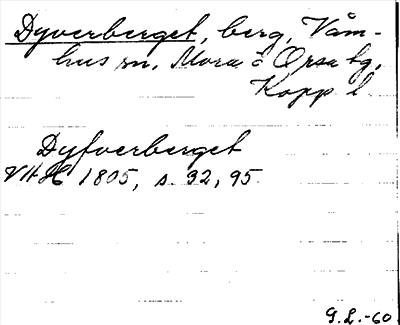 Dyverberget, berg, Våm-
hus sn, Mora o Orsa tg,
Kopp l.
Dyfverberget
VHH 1805, s. 92, 95.
G.L.-60